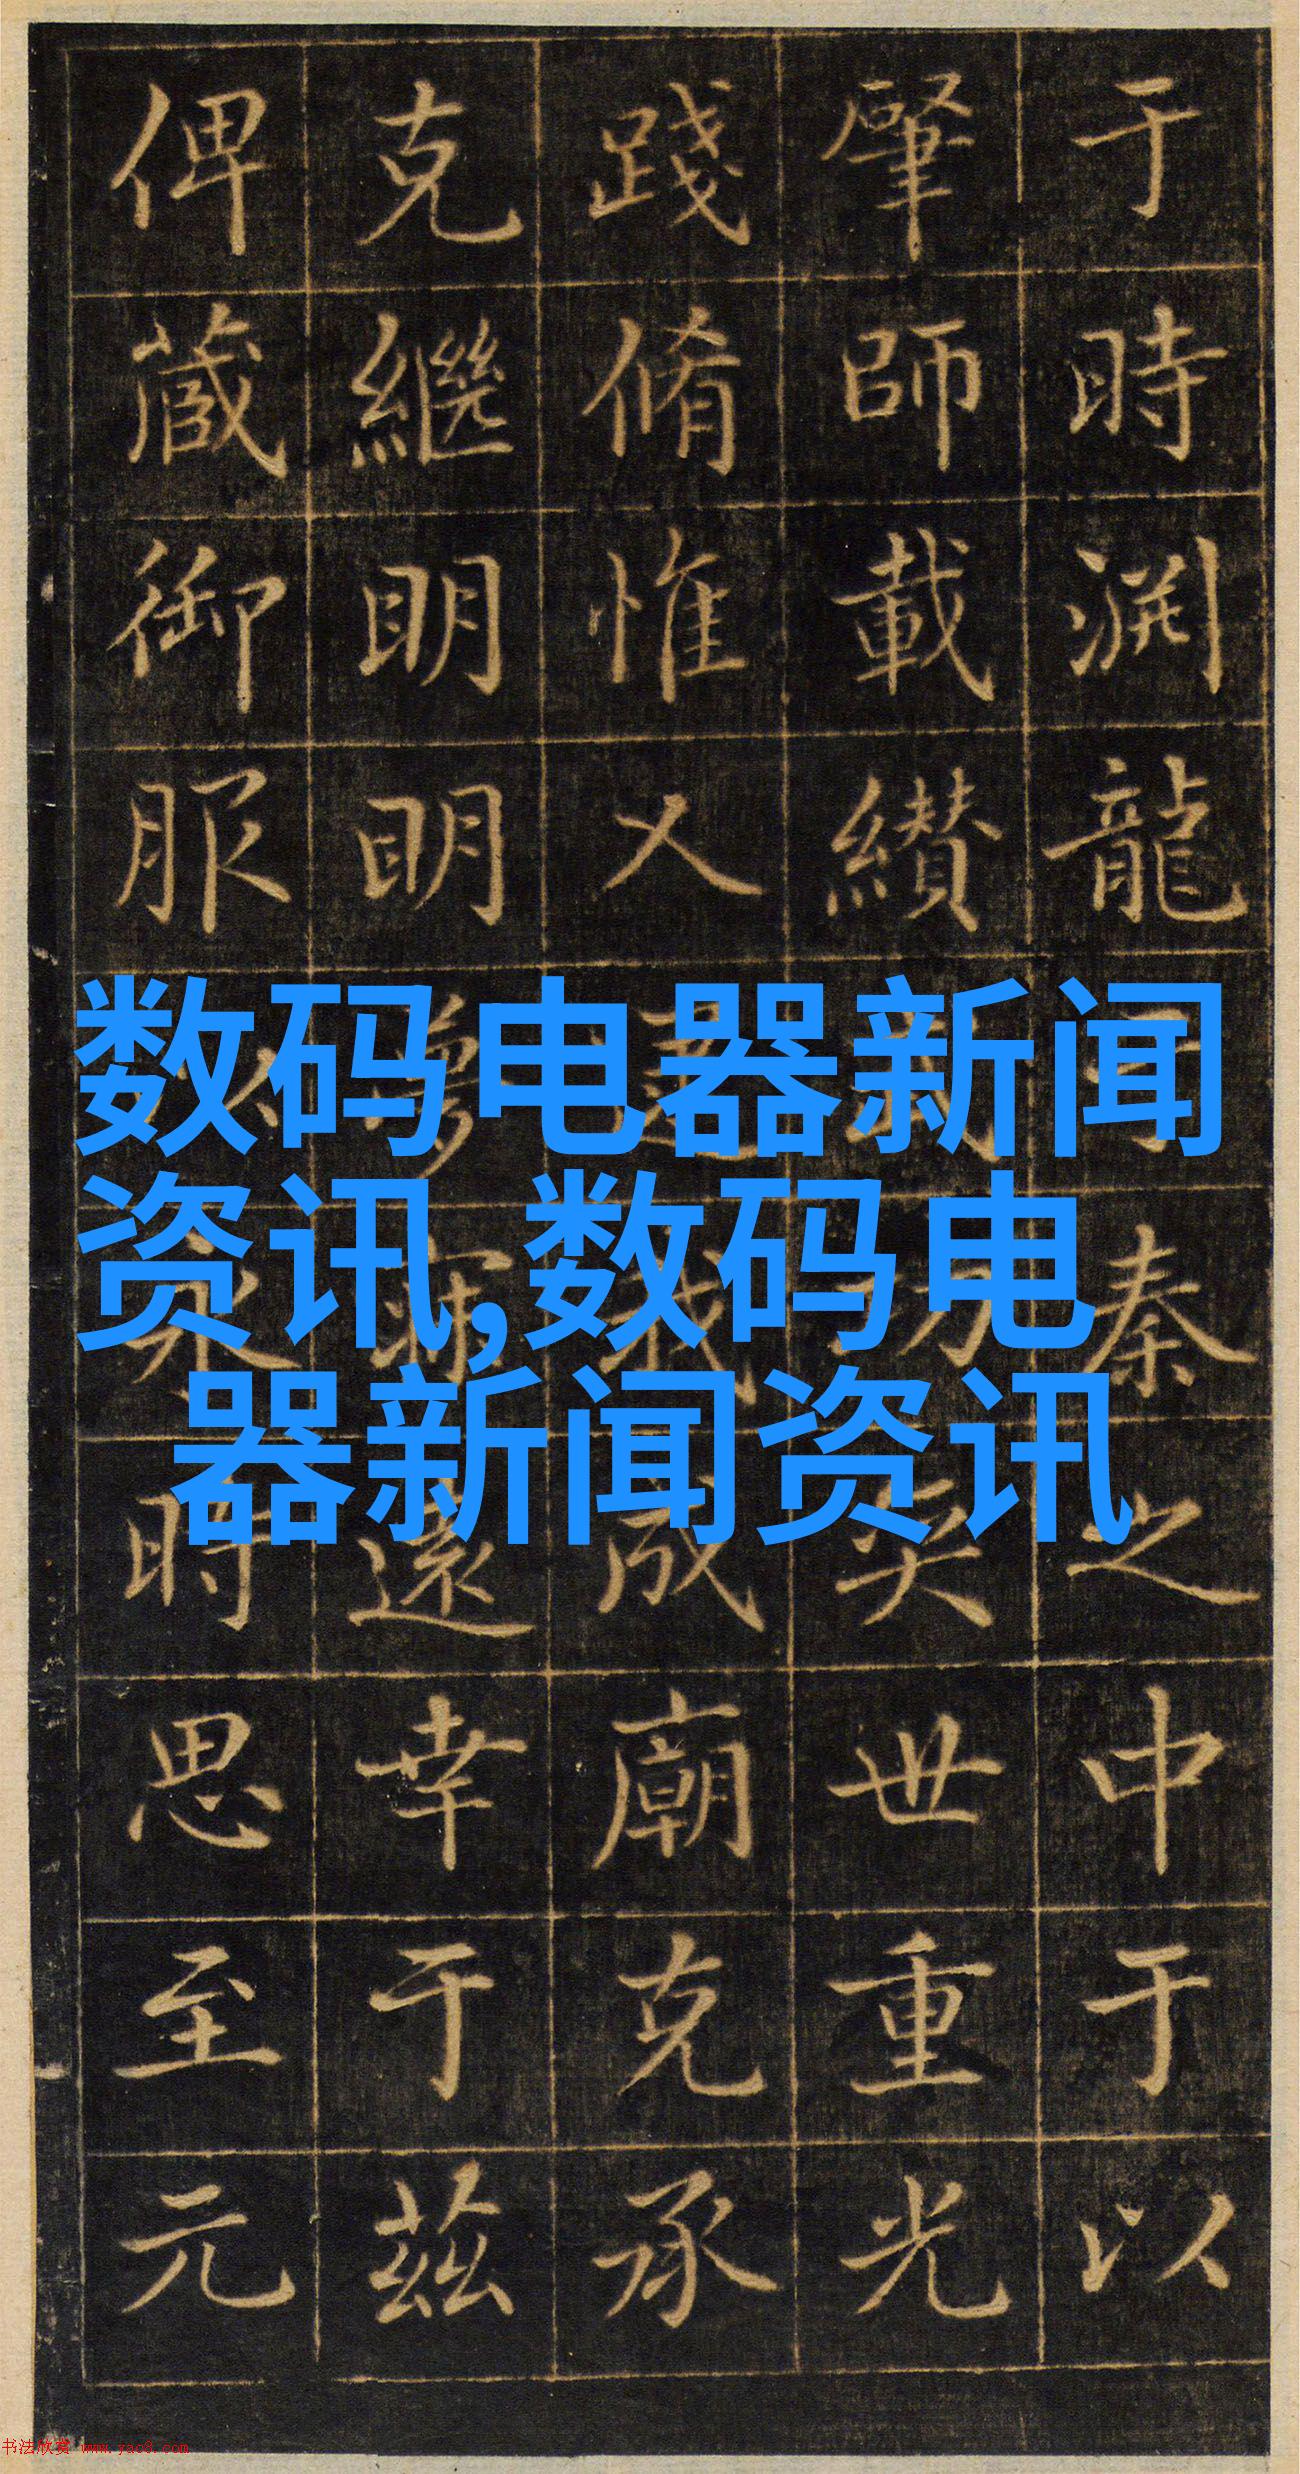 于時渊龍秦之中于以
肇師載纘功奕世重光
踐脩惟乂我成廟克承
克繼明明夢寐遠幸于茲
俾蕆御服永時思至元
数码电器新闻
资讯,数码电
器新闻资讯
书法欣赏 www.yac8.com